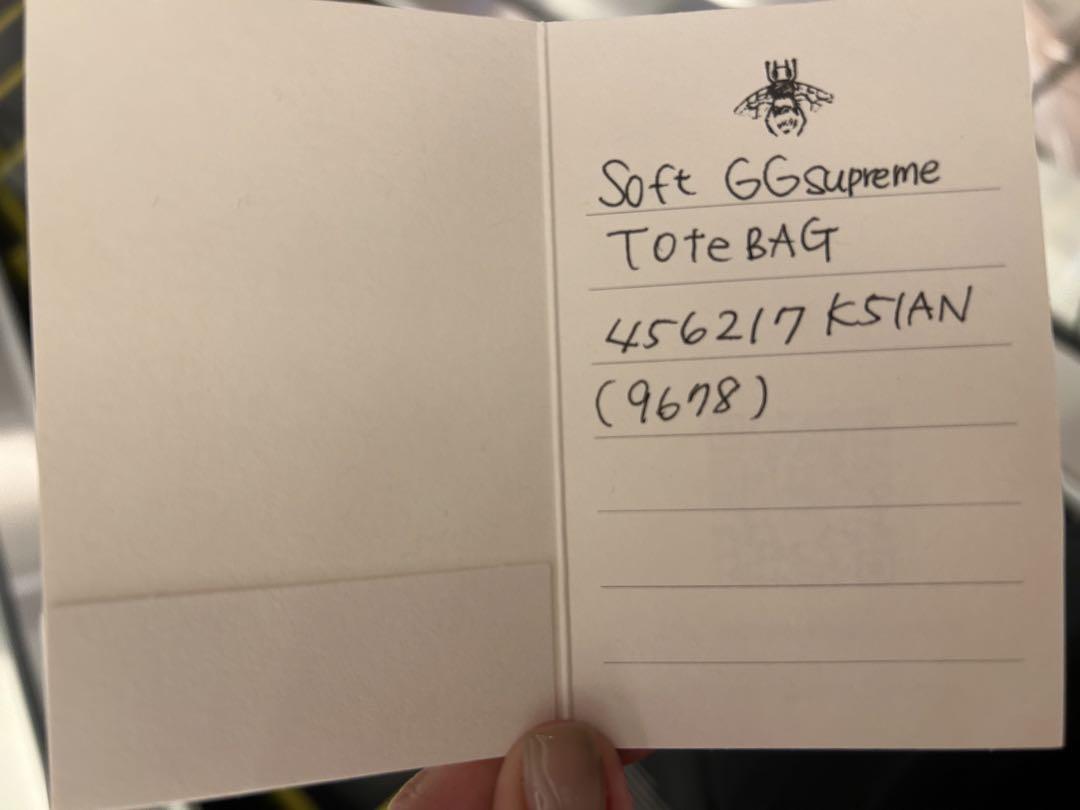 Soft GGsupreme
Tote BAG
456217 K5IAN
(9678)